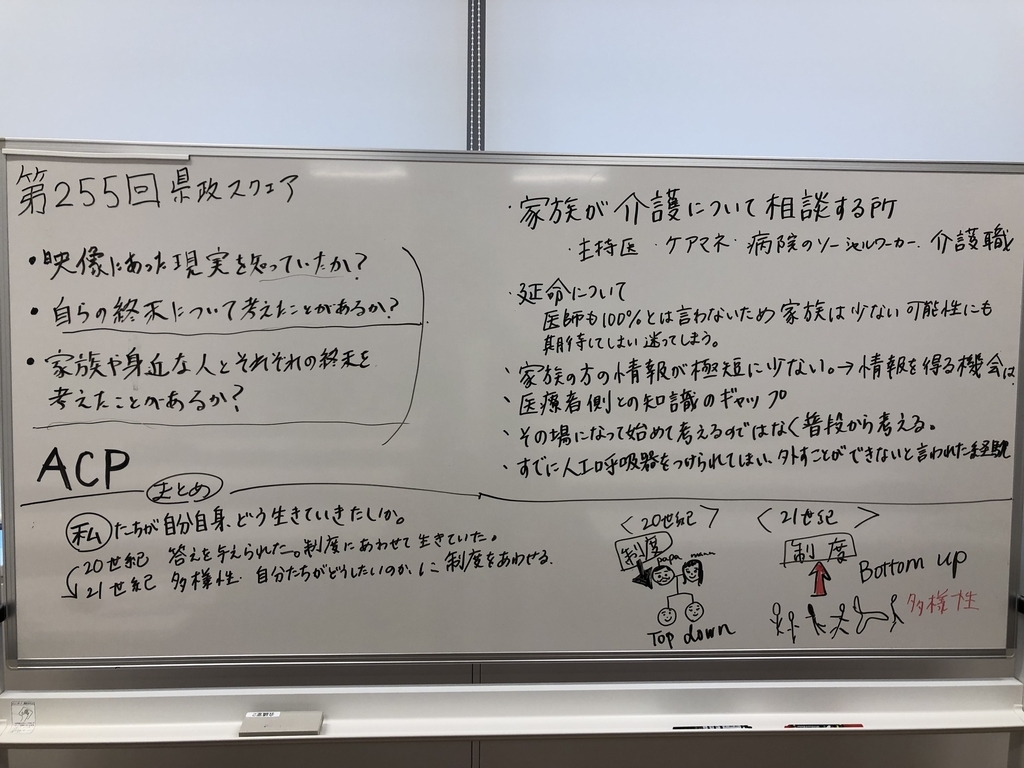 第255回 県政スクェア
・映像にあった現実を知っていたか?
・自らの終末について考えたことがあるか?
・家族や身近な人とそれぞれの終末を
考えたことがあるか?
ACP
・家族が介護について相談する所
・主持医・ケアマネ・病院のソーシャルワーカー、介護職
・延命について
医師も100%とは言わないため家族は少ない可能性にも
期待してしまい迷ってしまう。
、家族の方の情報が極短に少ない。→情報を得る機会は
、医療者側との知識のギャップ
、その場になって始めて考えるのではなく普段から考える。
・すでに人工呼吸器をつけられてしまい、外すことができないと言われた経験
まとめ
私たちが自分自身、どう生きていきたいか。
20世紀 答えを与えられた。制度にあわせて生きていた。
21世紀 多様性 自分たちがどうしたいのか、に 制度をあわせる.
<20世紀>
制度
papa
Top down
<21世紀>
制度
Bottom up
多様性